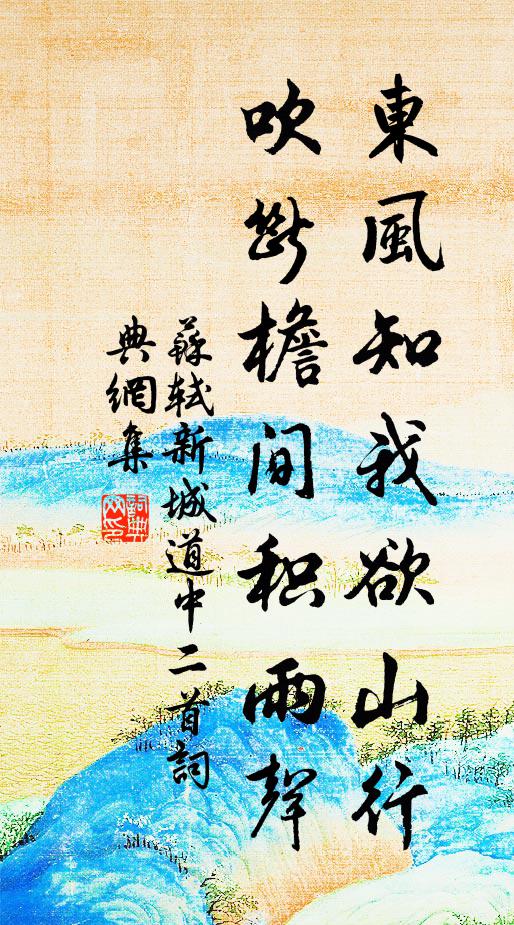 東風知我欲山行
吹斷檐間积雨聲
蘇軾新城道中二首詞
典網集